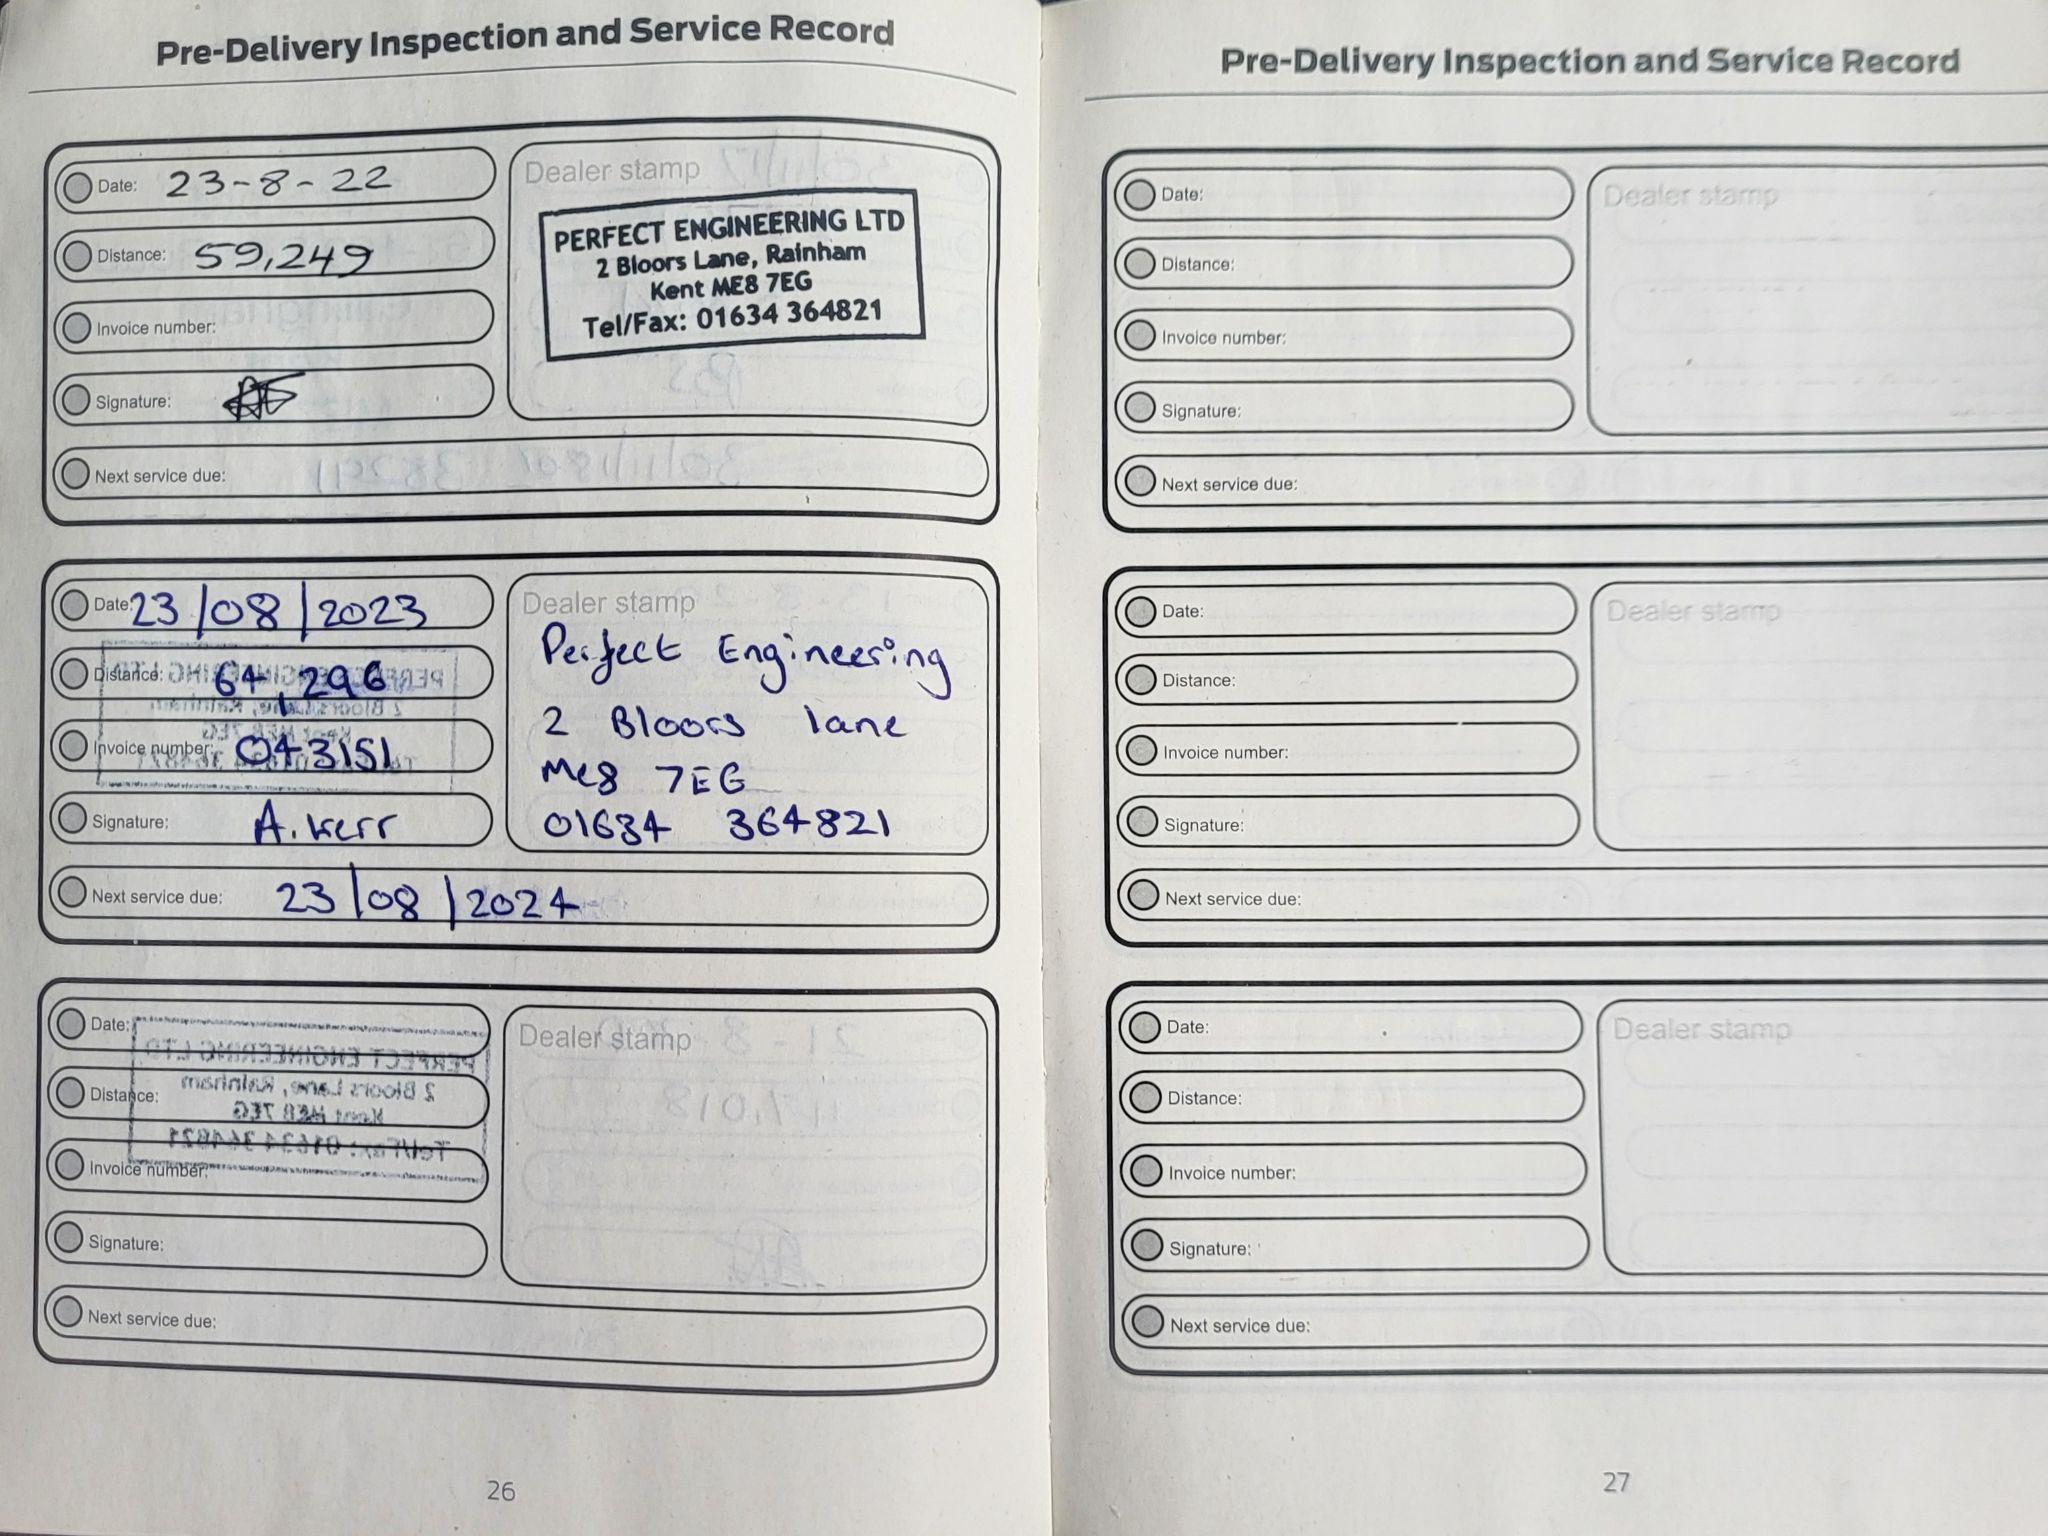 Pre-Delivery Inspection and Service Record
Date: 23-8-22
Distance: 59,249
Invoice number:
Signature:
Next service due:
Dealer stamp
PERFECT ENGINEERING LTD
2 Bloors Lane, Rainham
Kent ME8 7EG
Tel/Fax: 01634 364821
Date: 23/08/2023
Distance: 64,296
Invoice number: 043151
Signature: A. Kerr
Next service due: 23/08/2024
Dealer stamp
Perfect Engineering
2 Bloors lane
Me8 7EG
01634 364821
Date:
Distance:
Invoice number:
Signature:
Next service due:
Dealer stamp
26
Pre-Delivery Inspection and Service Record
Date:
Distance:
Invoice number:
Signature:
Next service due:
Dealer stamp
Date:
Distance:
Invoice number:
Signature:
Next service due:
Dealer stamp
Date:
Distance:
Invoice number:
Signature:
Next service due:
Dealer stamp
27